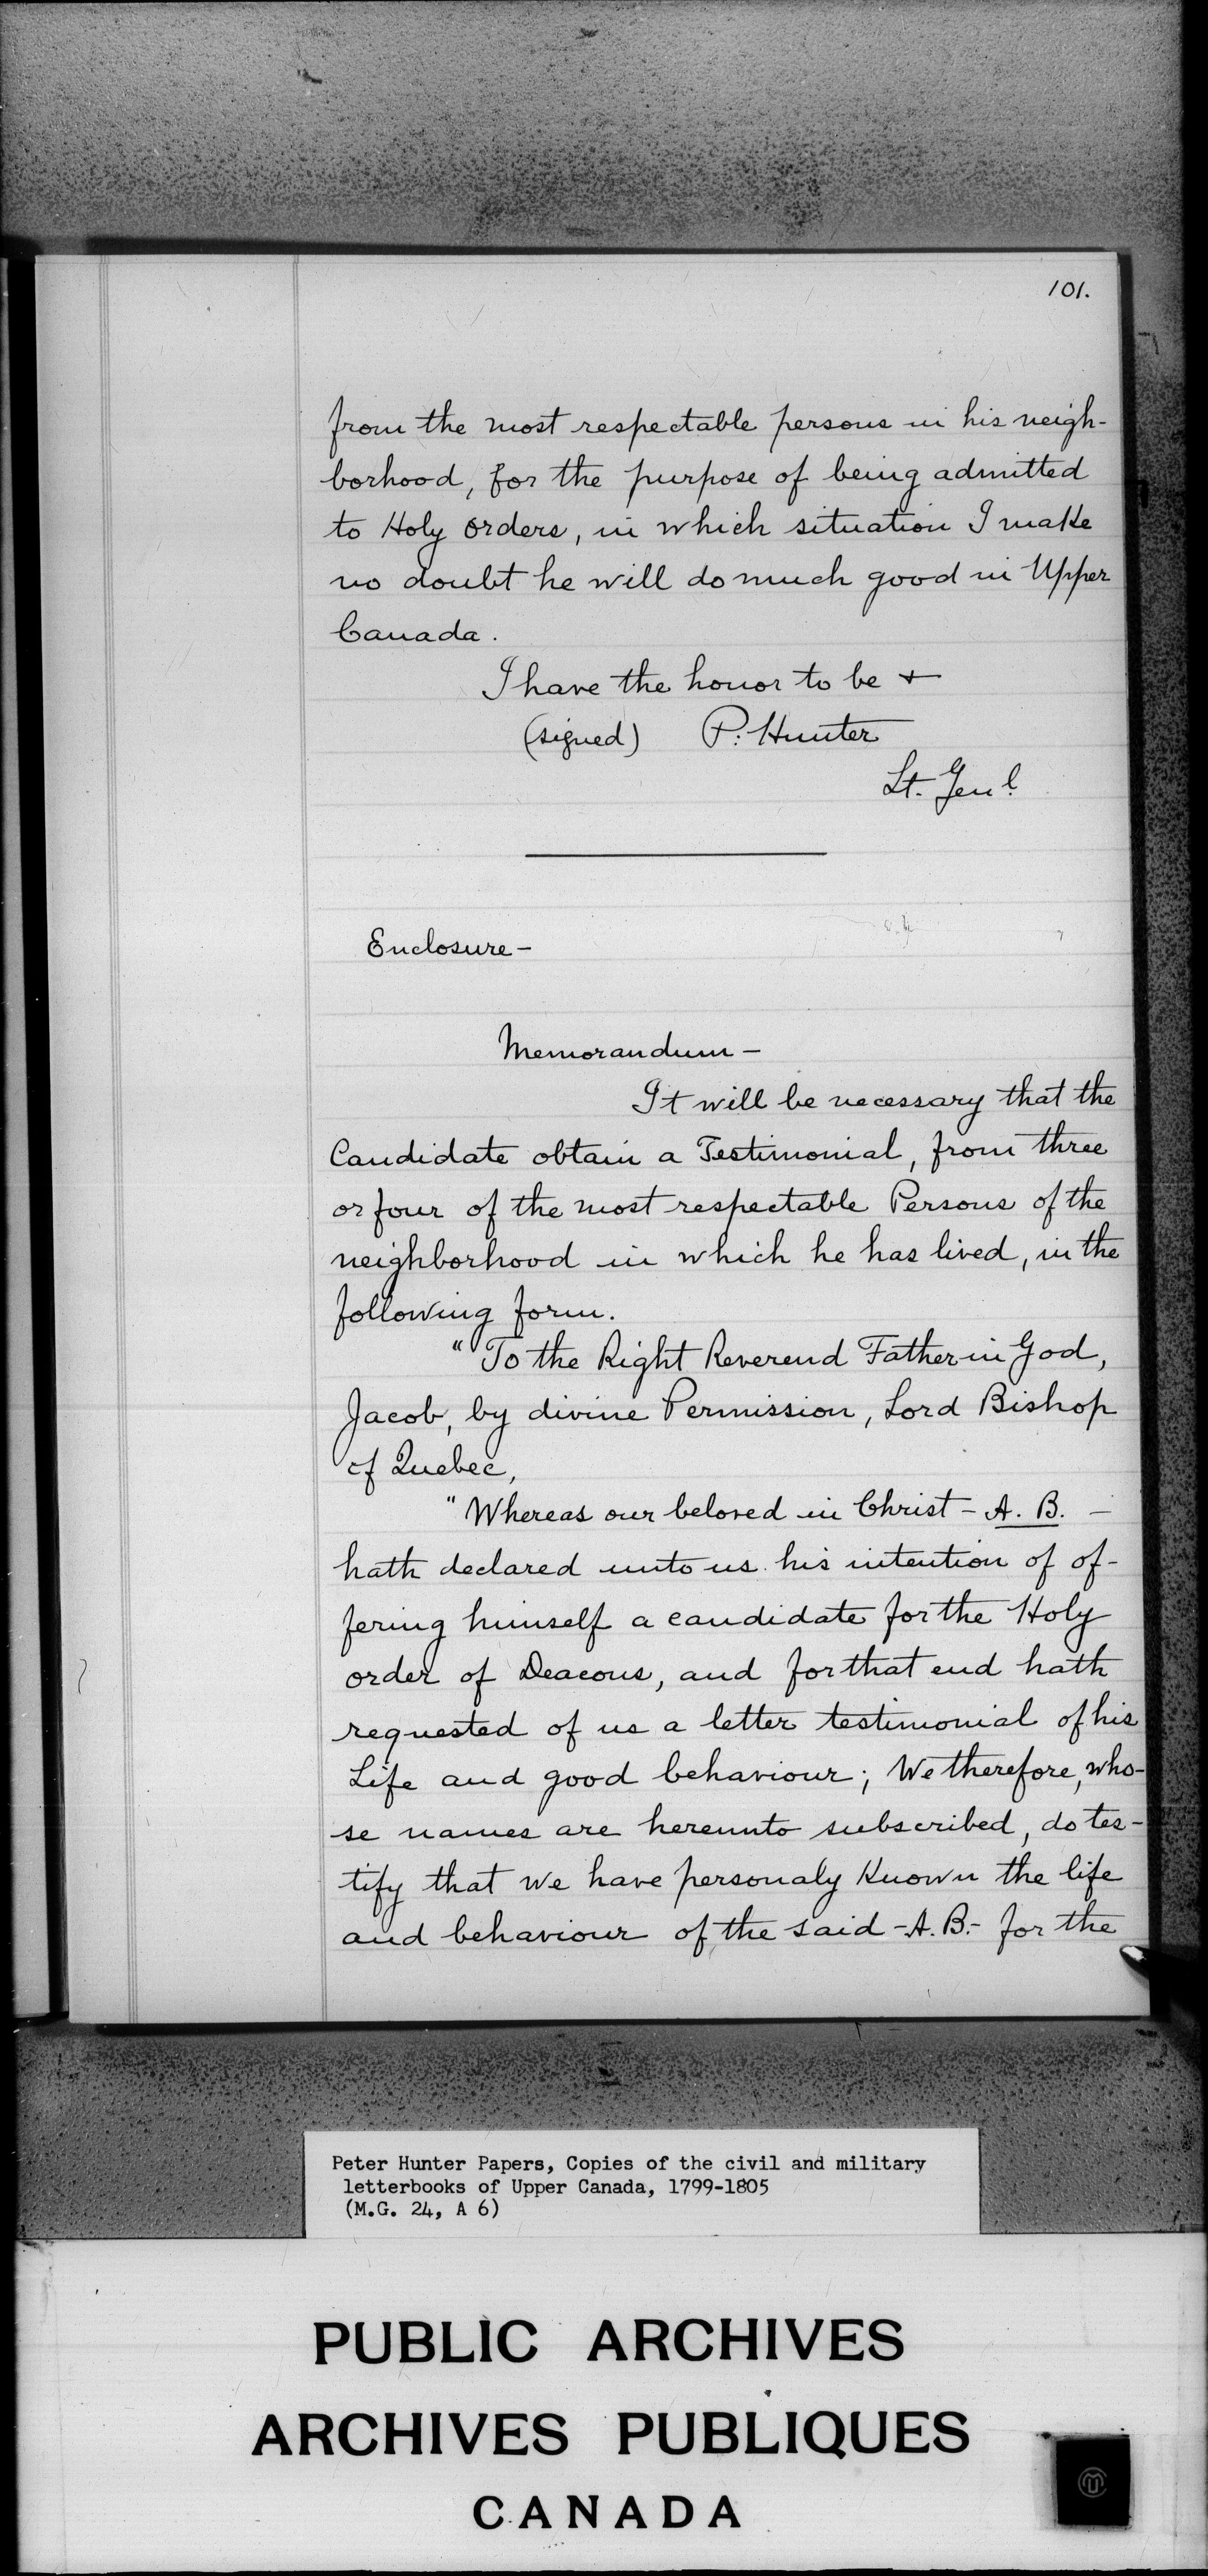 101.
from the most respectable persons in his neigh-
borhood, for the purpose of being admitted
to Holy orders, in which situation I make
no doubt he will do much good in Upper
Canada.
I have the honor to be +
(signed) P. Hunter
Lt. Genl.
Enclosure-
Memorandum-
It will be necessary that the
Candidate obtain a Testimonial, from three
or four of the most respectable Persons of the
neighborhood in which he has lived, in the
following form.
"To the Right Reverend Father in God,
Jacob, by divine Permission, Lord Bishop
of Quebec,
"Whereas our beloved in Christ - A. B. -
hath declared unto us his intention of of-
fering himself a candidate for the Holy
order of Deacons, and for that end hath
requested of us a letter testimonial of his
Life and good behaviour; We therefore, who-
se names are hereunto subscribed, do tes-
tify that we have personaly Known the life
and behaviour of the said -A. B.- for the
Peter Hunter Papers, Copies of the civil and military
letterbooks of Upper Canada, 1799-1805
(M.G. 24, A 6)
PUBLIC ARCHIVES
ARCHIVES PUBLIQUES
CANADA